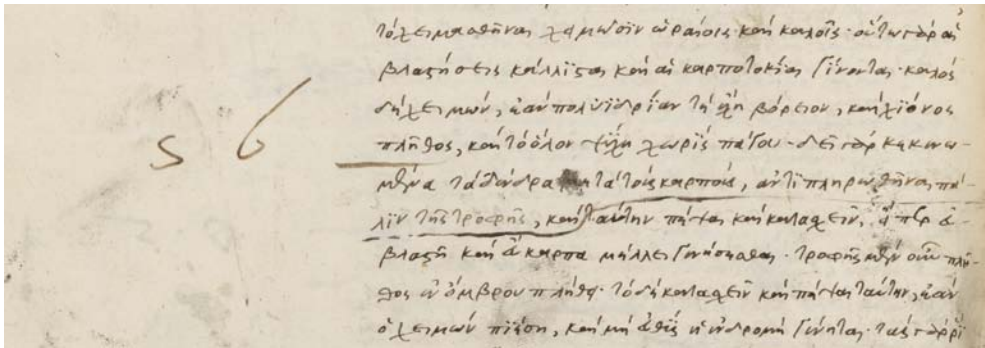 τὸ χειμασθῆναι χειμῶσιν ὡραίοις καὶ καλοῖς· οὕτω γὰρ αἱ
βλαστήσεις κάλλισται καὶ αἱ καρποτοκίαι γίνονται· καλὸς
δὲ χειμών, ἐὰν πολυϋδρίαν τὲ ἔχη βόρειον, καὶ χιόνος
S 6
πλῆθος, καὶ τὸ ὅλον χωρὶς πάγου· δεῖ γὰρ κεκινω-
μένα τὰ δένδρα μετὰ τοὺς καρποὺς, ἀντιπληρωθῆναι πά-
λιν τῆς τροφῆς, καὶ ταύτην πέψαι καὶ κατασχεῖν, εἴπερ εὐ-
βλαστῆ καὶ εὔκαρπα μέλλει γενήσεσθαι· τροφῆς μὲν οὖν πλῆ-
θος ἐν ὄμβρου πλήθει· τὸ δὲ κατασχεῖν καὶ πέψαι ταύτην, ἐὰν
ὁ χειμὼν πιέση, καὶ μὴ εὐθὺς ἡ γένηται· τὰς γὰρ ῥί